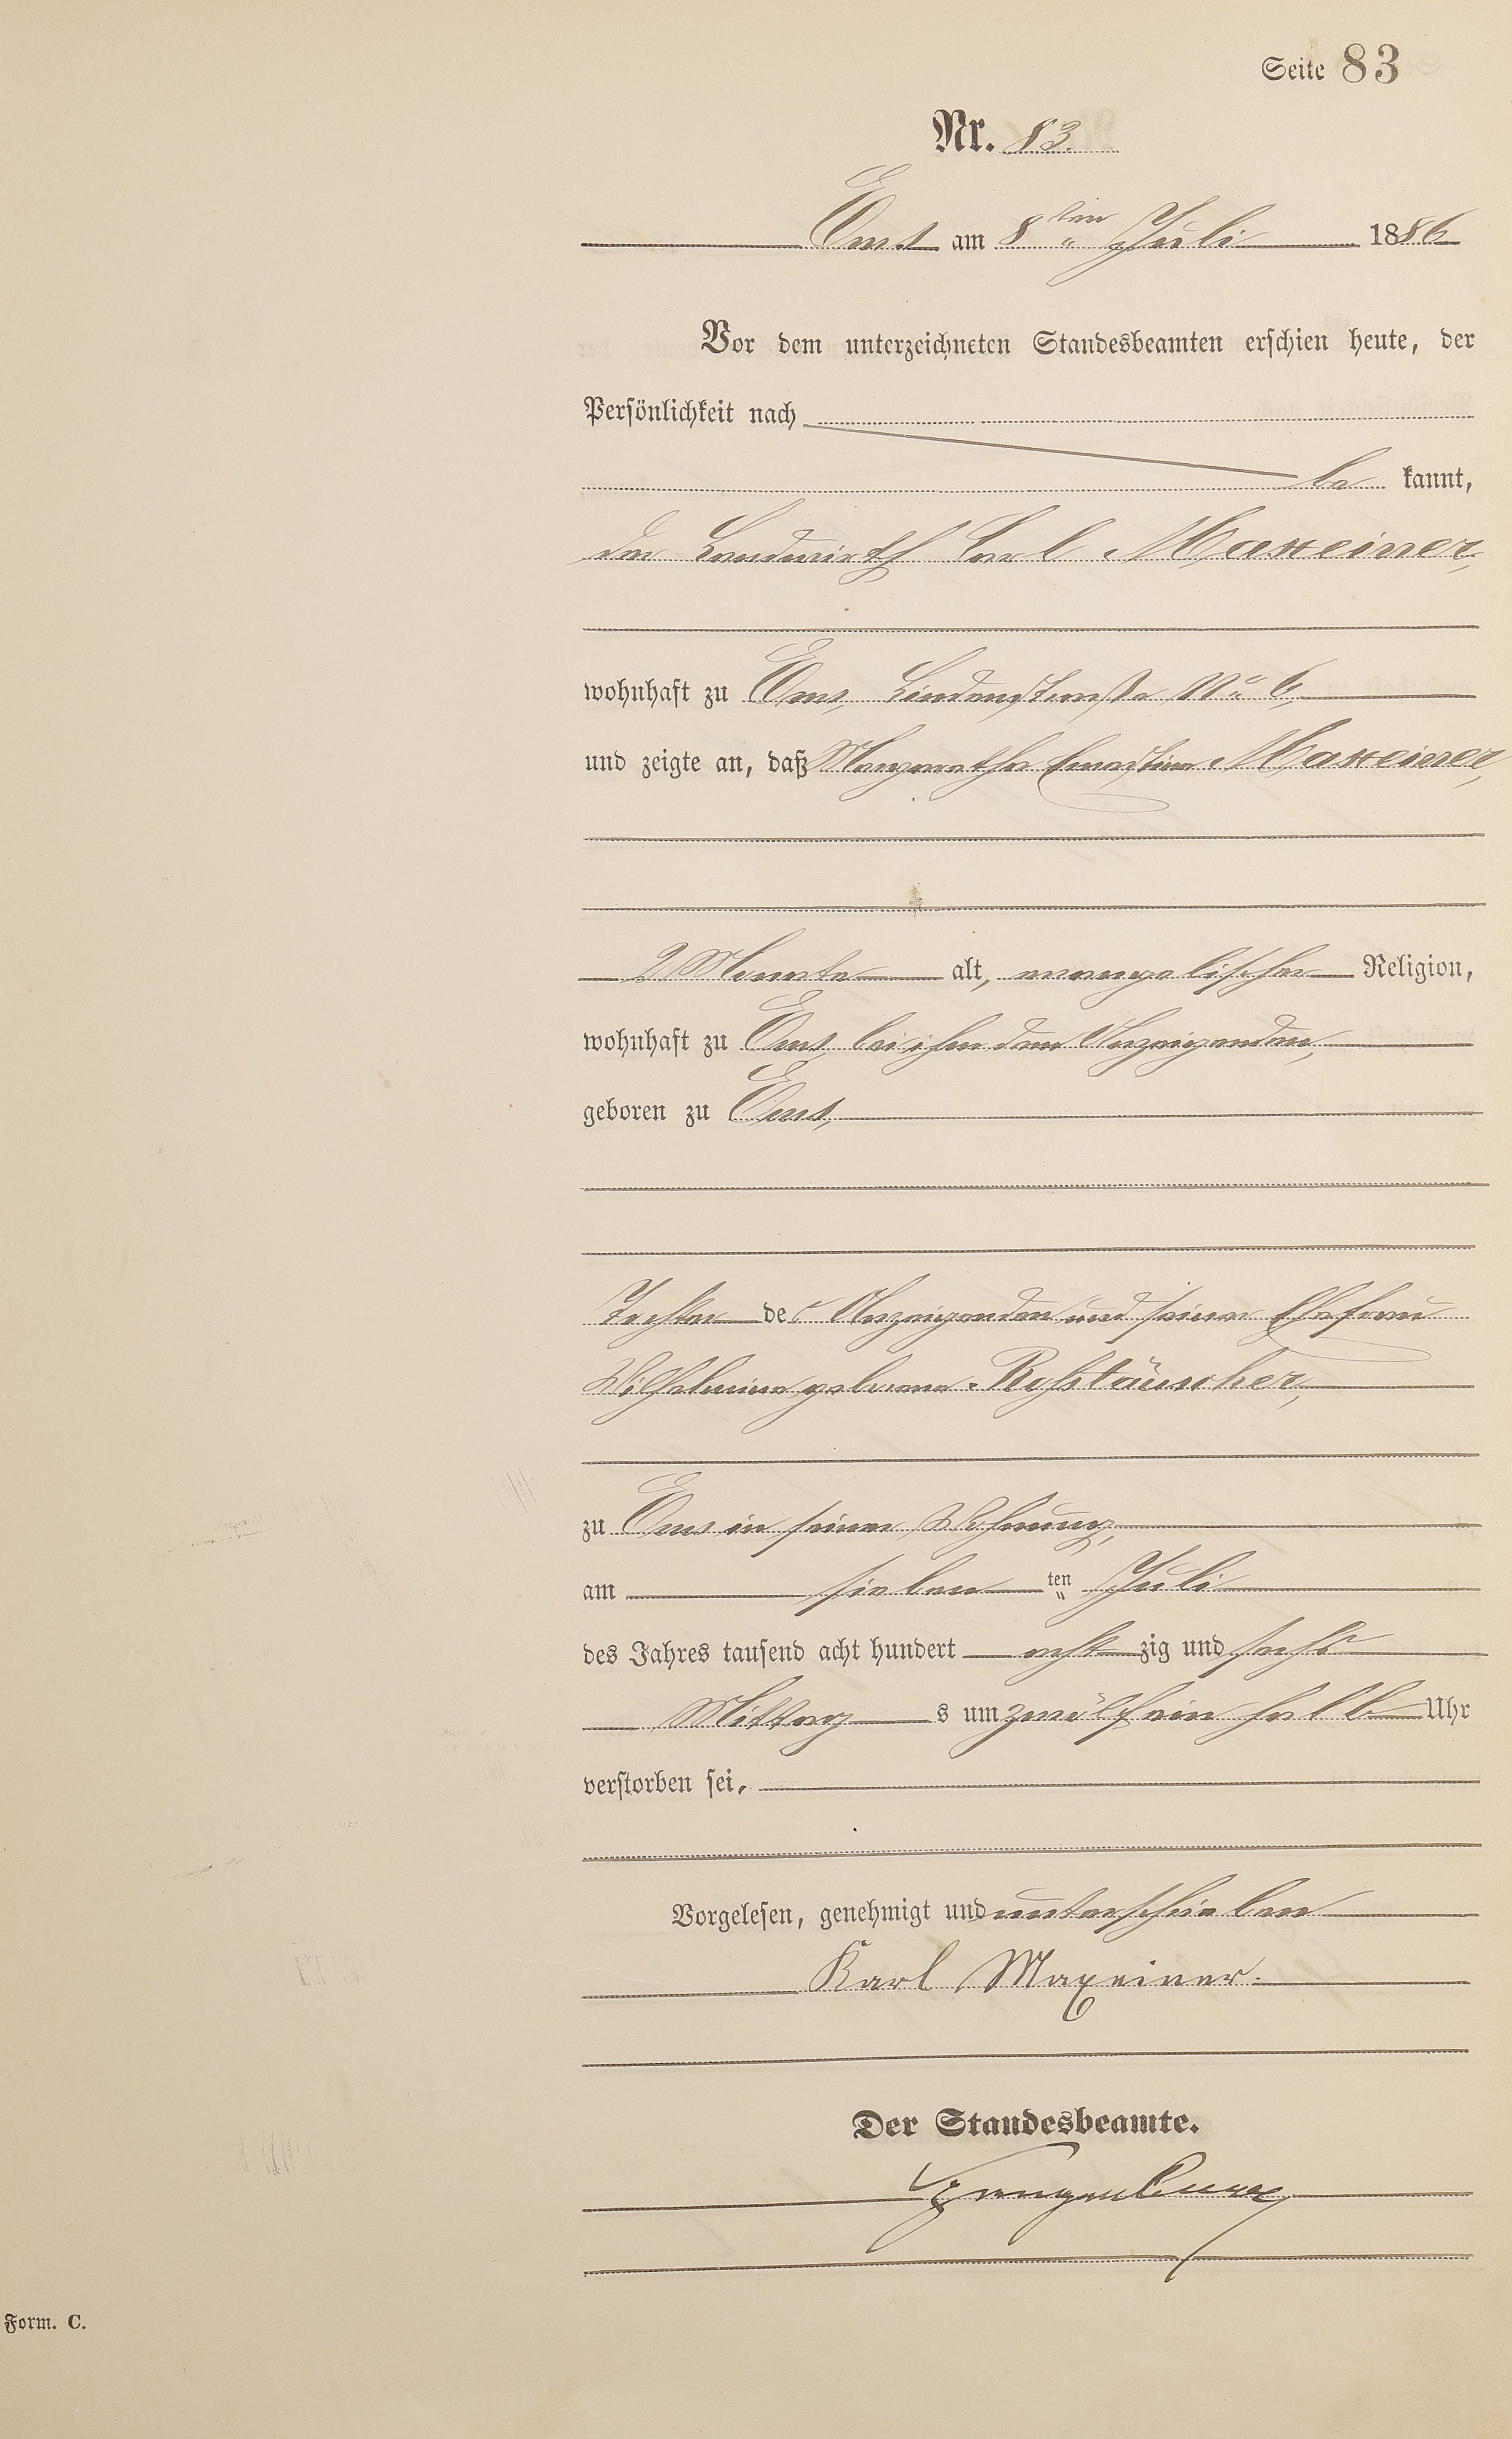 Seite 83
Nr. 83.
Ems am 8ten Juli 1886
Vor dem unterzeichneten Standesbeamten erschien heute, der
Persönlichkeit nach
be kannt,
der Landwirth Carl Maxeiner,
wohnhaft zu Ems, Lindenstraße No 6,
und zeigte an, daß Margaretha Ernestine Maxeiner,
2 Monate alt, evangelischer Religion,
wohnhaft zu Ems bei ihm dem Anzeigenden,
geboren zu Ems,
Tochter des Anzeigenden und seiner Ehefrau
Wilhelmine geborene Roßtäuscher,
zu Ems in seiner Wohnung,
am sieben ten Juli
des Jahres tausend acht hundert acht zig und sechs
Mittag s um zwölf ein halb Uhr
verstorben sei.
Vorgelesen, genehmigt und unterschrieben
Karl Maxeiner.
Der Standesbeamte.
Form. C.